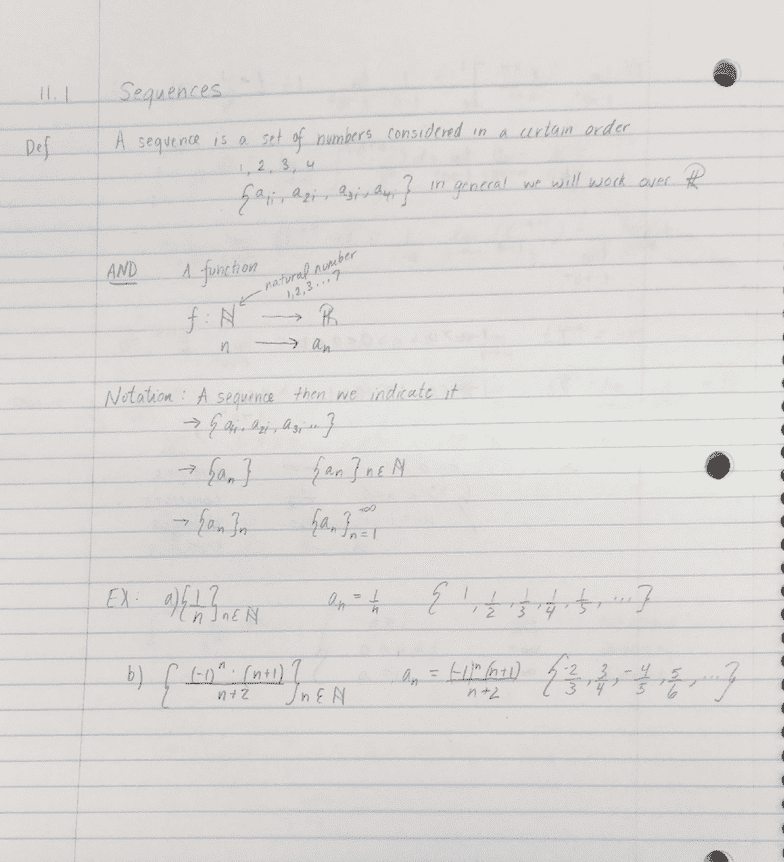 11.1 Sequences
Def A sequence is a set of numbers considered in a certain order
1, 2, 3, 4
{a₁, a₂, a₃, a₄, } in general we will work over ℝ
AND A function
natural number
1,2,3...}
f : ℕ → ℝ
n → aₙ
Notation : A sequence then we indicate it
→ {a₁, a₂, a₃, ...}
→ {aₙ} {aₙ} n ε ℕ
→ {aₙ}ₙ {aₙ}ₙ₌₁^∞
EX. a) {1/n} n ε ℕ aₙ = 1/n { 1, 1/2, 1/3, 1/4, 1/5, ...}
b) { (-1)ⁿ · (n+1) / n+2 } n ε ℕ aₙ = (-1)ⁿ (n+1) / n+2 { -2/3, 3/4, -4/5, 5/6, ...}